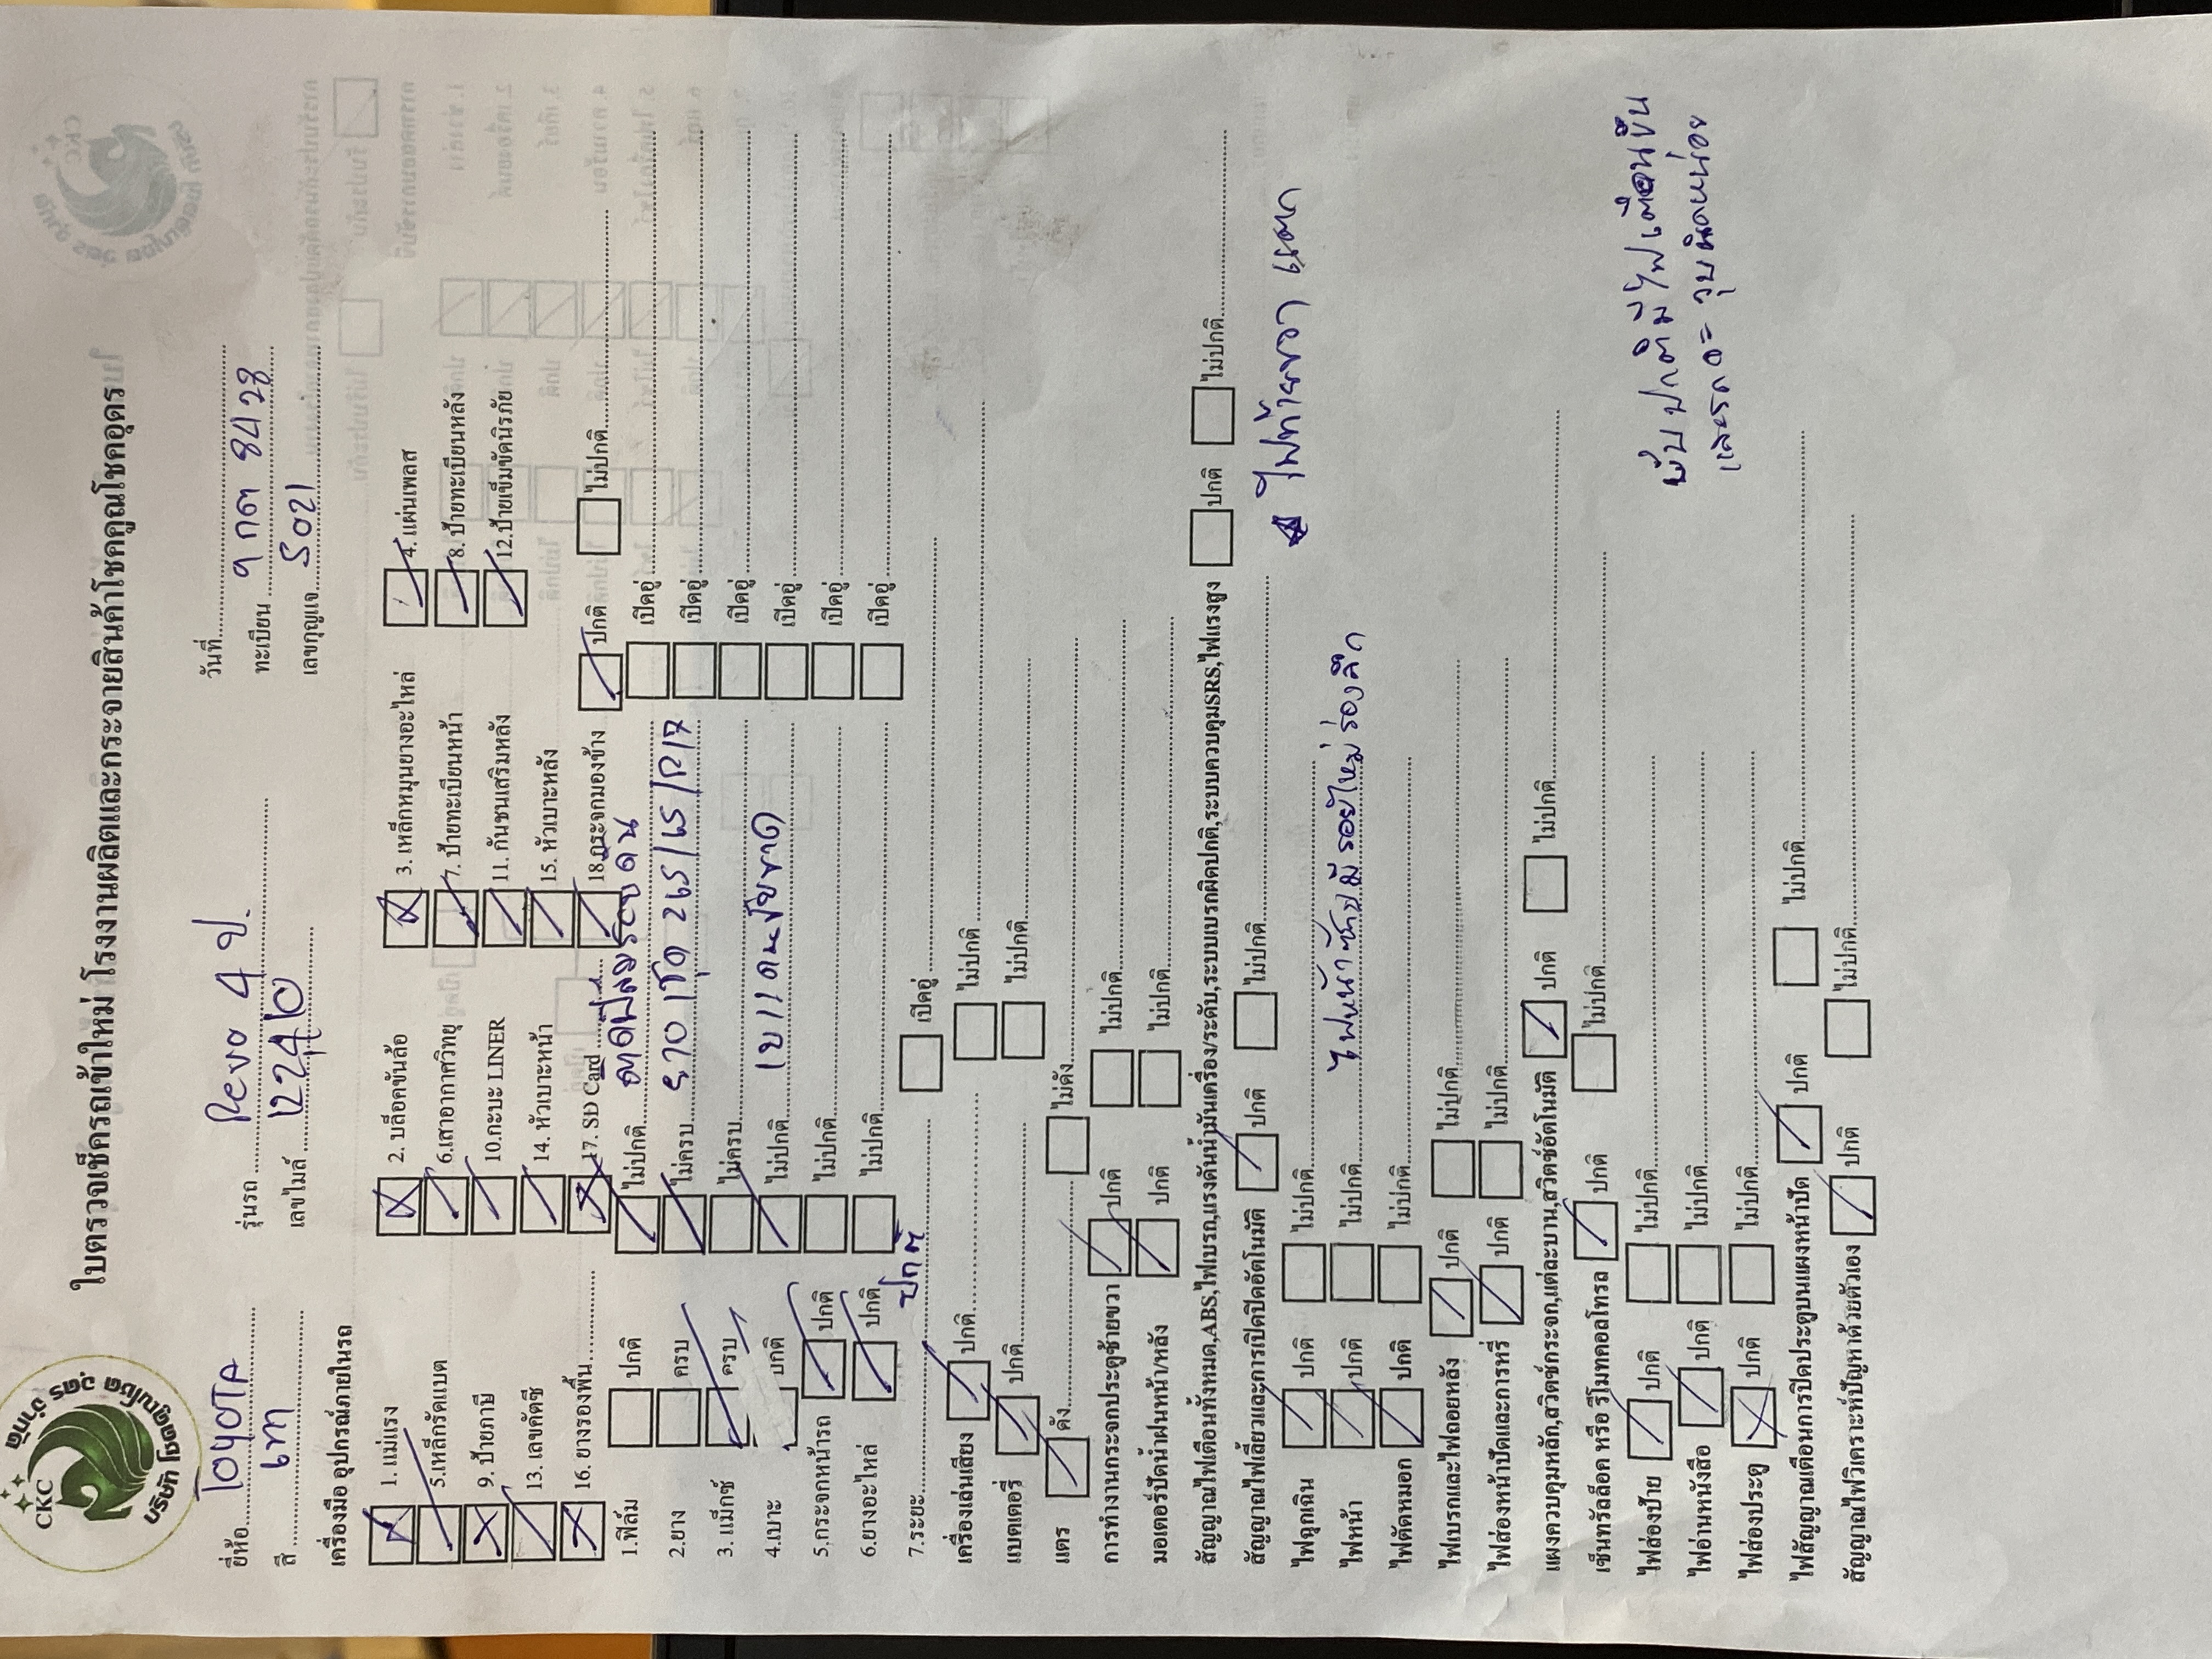 CKC
บริษัท โชคคูณโชค อุดร จำกัด
ใบตรวจเช็ครถเข้าใหม่ โรงงานผลิตและกระจายสินค้าโชคคูณโชคอุดร
ยี่ห้อ TOYOTA รุ่นรถ Revo 4 ป. วันที่
สี เทา เลขไมล์ ทะเบียน 9 กต 8428
เลขกุญแจ 5021
เครื่องมือ อุปกรณ์ภายในรถ
1. แม่แรง 2. บล็อคขันล้อ 3. เหล็กหมุนยางอะไหล่ 4. แผ่นเพลส
5.เหล็กรัดแบต 6.เสาอากาศวิทยุ 7. ป้ายทะเบียนหน้า 8. ป้ายทะเบียนหลัง
9. ป้ายภาษี 10.กะบะ LINER 11. กันชนเสริมหลัง 12.ป้ายเข็มขัดนิรภัย
13. เลขคัตซี 14. หัวเบาะหน้า 15. หัวเบาะหลัง
16. ยางรองพื้น 17. SD Card 18.กระจกมองข้าง ปกติ ไม่ปกติ
1.ฟิล์ม ปกติ ไม่ปกติ เปิดอู่
2.ยาง ครบ ไม่ครบ 265/65/R17 เปิดอู่
3. แม็กซ์ ครบ ไม่ครบ เปิดอู่
4.เบาะ ปกติ ไม่ปกติ เปิดอู่
5.กระจกหน้ารถ ปกติ ไม่ปกติ เปิดอู่
6.ยางอะไหล่ ปกติ ไม่ปกติ เปิดอู่
7.ระยะ ปกติ เปิดอู่
เครื่องเล่นเสียง ปกติ ไม่ปกติ
แบตเตอรี่ ปกติ ไม่ปกติ
แตร ดัง ไม่ดัง
การทำงานกระจกประตูซ้ายขวา ปกติ ไม่ปกติ
มอเตอร์ปัดน้ำฝนหน้า/หลัง ปกติ ไม่ปกติ
สัญญาณไฟเตือนทั้งหมด,ABS,ไฟเบรก,แรงดันน้ำมันเครื่อง/ระดับ,ระบบเบรกผิดปกติ,ระบบควบคุมSRS,ไฟแรงสูง ปกติ ไม่ปกติ
สัญญาณไฟเลี้ยวและการเปิดปิดอัตโนมัติ ปกติ ไม่ปกติ
ไฟท้ายขวา แตก
ไฟฉุกเฉิน ปกติ ไม่ปกติ
ไฟหน้า ปกติ ไม่ปกติ ไฟหน้าซ้ายมีรอยใหม่ร่องลึก
ไฟตัดหมอก ปกติ ไม่ปกติ
ไฟเบรกและไฟถอยหลัง ปกติ ไม่ปกติ
ไฟส่องหน้าปัดและการหรี่ ปกติ ไม่ปกติ
แผงควบคุมหลัก,สวิตช์กระจก,แต่ละบาน,สวิตช์อัตโนมัติ ปกติ ไม่ปกติ
เซ็นทรัลล็อค หรือ รีโมทคอลโทรล ปกติ ไม่ปกติ
ไฟส่องป้าย ปกติ ไม่ปกติ
ขับปกติมีไฟเตือนขึ้น
ไฟอ่านหนังสือ ปกติ ไม่ปกติ
และรถจะวูบนิดหน่อย
ไฟส่องประตู ปกติ ไม่ปกติ
ไฟสัญญาณเตือนการปิดประตูบนแผงหน้าปัด ปกติ ไม่ปกติ
สัญญาณไฟวิเคราะห์ปัญหาด้วยตัวเอง ปกติ ไม่ปกติ